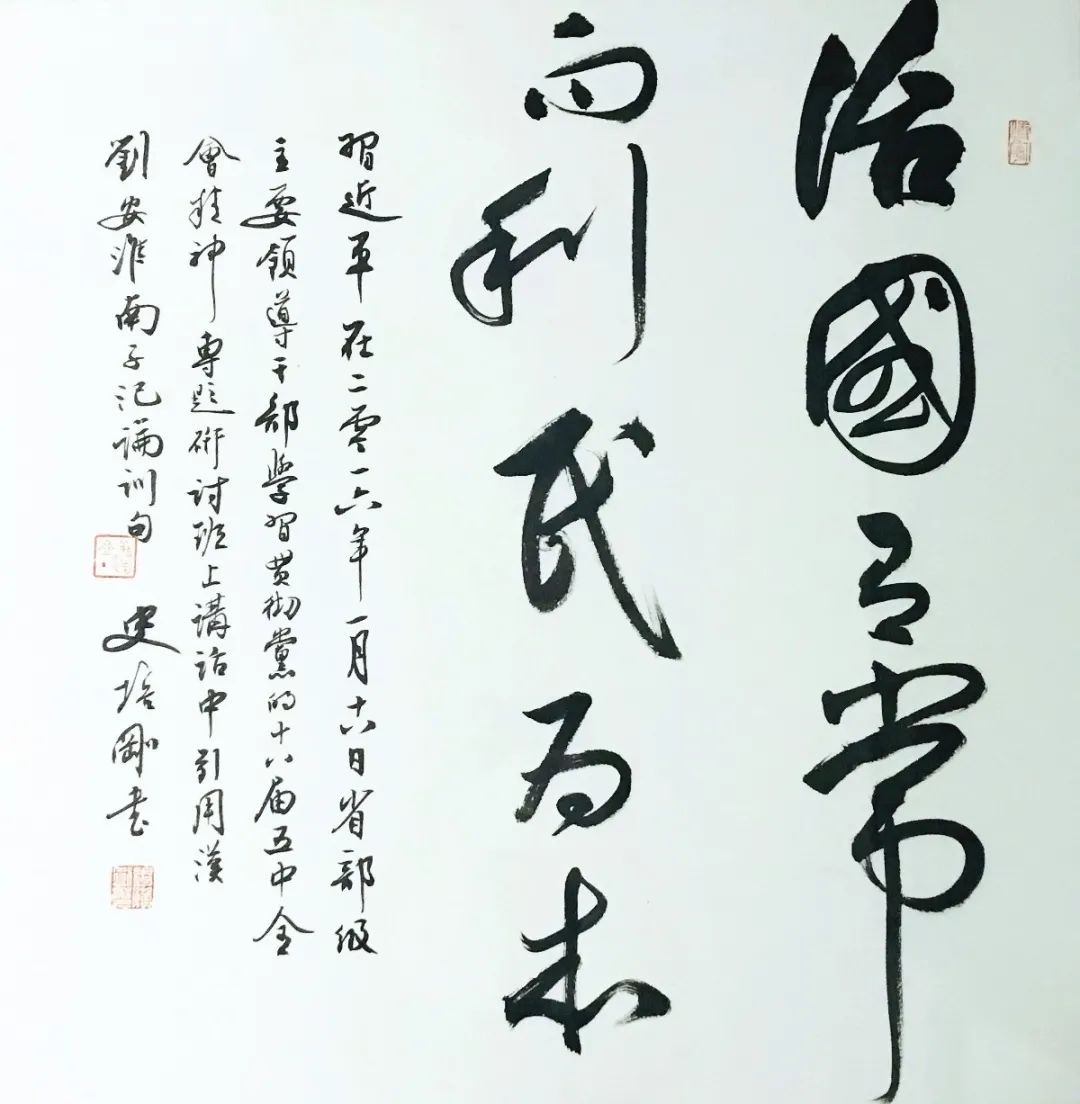 治國有常
而利民為本
習近平在二零一六年一月十八日省部级
主要領導干部學習贯彻黨的十八届五中全
會精神專题研討班上講話中引用漢
劉安淮南子氾論训句
史培剛書